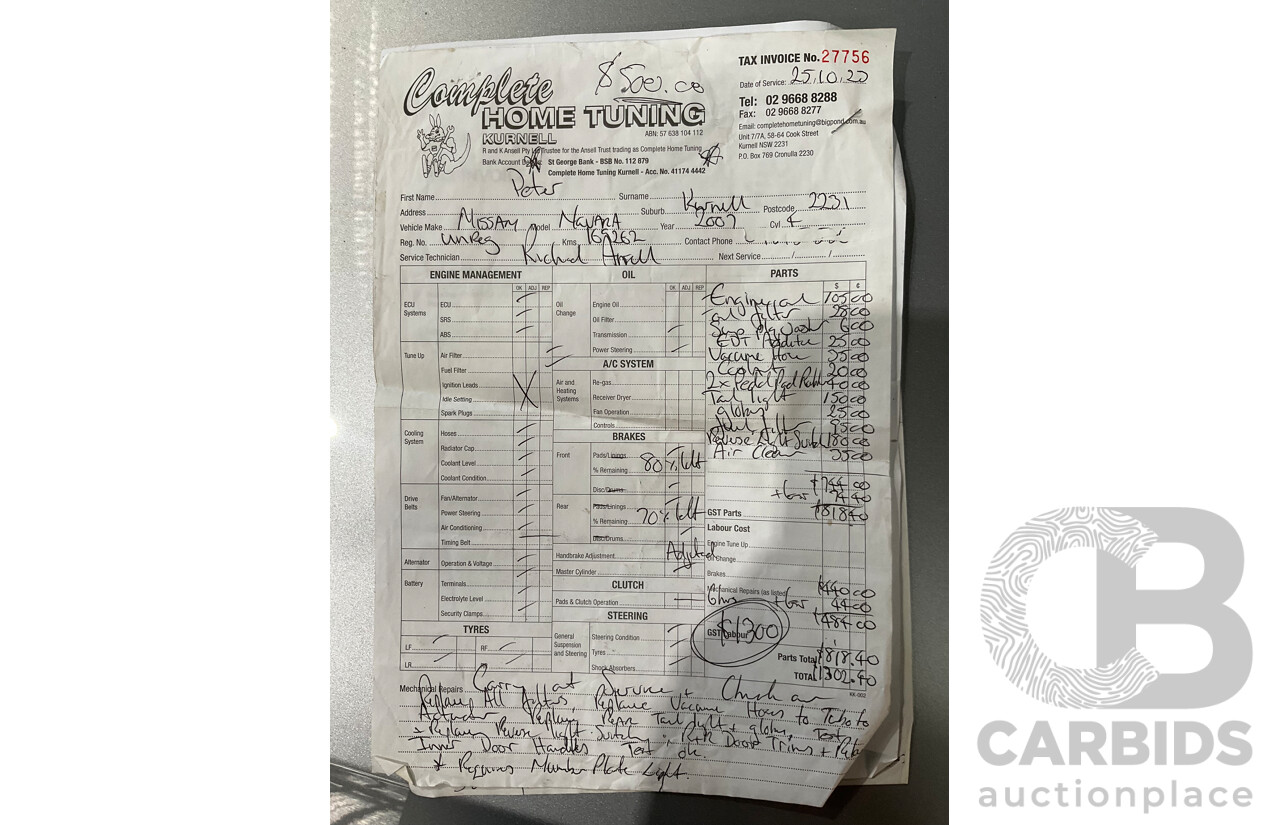 TAX INVOICE No. 27756
$500.00
Date of Service: 25.10.20
Complete
HOME TUNING
KURNELL
ABN: 57 638 104 112
Tel: 02 9668 8288
Fax: 02 9668 8277
Email: completehometuning@bigpond.com.au
Unit 7/7A, 58-64 Cook Street
Kurnell NSW 2231
P.O. Box 769 Cronulla 2230
R and K Ansell Pty Trustee for the Ansell Trust trading as Complete Home Tuning
Bank Account St George Bank - BSB No. 112 879
Complete Home Tuning Kurnell - Acc. No. 41174 4442
First Name Peter Surname
Address Suburb Kurnell Postcode 2231
Vehicle Make Nissan Model Navara Year 2007 Cyl 4
Reg. No. UnReg Kms 165262 Contact Phone
Service Technician Richard Ansell Next Service
ENGINE MANAGEMENT
OK ADJ REP
ECU Systems
ECU
SRS
ABS
Tune Up
Air Filter
Fuel Filter
Ignition Leads
Idle Setting
Spark Plugs
Cooling System
Hoses
Radiator Cap
Coolant Level
Coolant Condition
Drive Belts
Fan/Alternator
Power Steering
Air Conditioning
Timing Belt
Alternator
Operation & Voltage
Battery
Terminals
Electrolyte Level
Security Clamps
TYRES
LF RF
LR
OIL
OK ADJ REP
Oil Change
Engine Oil
Oil Filter
Transmission
Power Steering
A/C SYSTEM
Air and Heating Systems
Re-gas
Receiver Dryer
Fan Operation
Controls
BRAKES
Front
Pads/Linings
% Remaining 80% left
Disc/Drums
Rear
Pads/Linings
% Remaining 70% left
Disc/Drums
Handbrake Adjustment Adjusted
Master Cylinder
CLUTCH
Pads & Clutch Operation
STEERING
General Suspension and Steering
Steering Condition
Tyres
Shock Absorbers
PARTS
$ ¢
Engine oil 105 00
oil filter 28 00
Sump plug washer 6 00
Additive 25 00
Vacume Hose 35 00
Coolant 20 00
2x Pedal Pad Rubber 40 00
Tail light 150 00
globes 25 00
Fuel filter 95 00
Reverse Light Switch 180 00
Air Cleaner 35 00
$744 00
74 40
GST Parts $818 40
Labour Cost
Engine Tune Up
Oil Change
Brakes
Mechanical Repairs (as listed) $440 00
6hrs 44 00
GST Labour $484 00
$1300
Parts Total $818.40
TOTAL $1302.40
KK-002
Mechanical Repairs Carry out Service + Check over
Replace All filters, Replace Vacume Hoses to Turbo
Actuator Replace Rear Tail light + globes, Test
Replace Reverse light Switch, R+R Door Trims +
Inner Door Handles Test ok.
* Requires Number Plate Light.
CB
CARBIDS
auctionplace